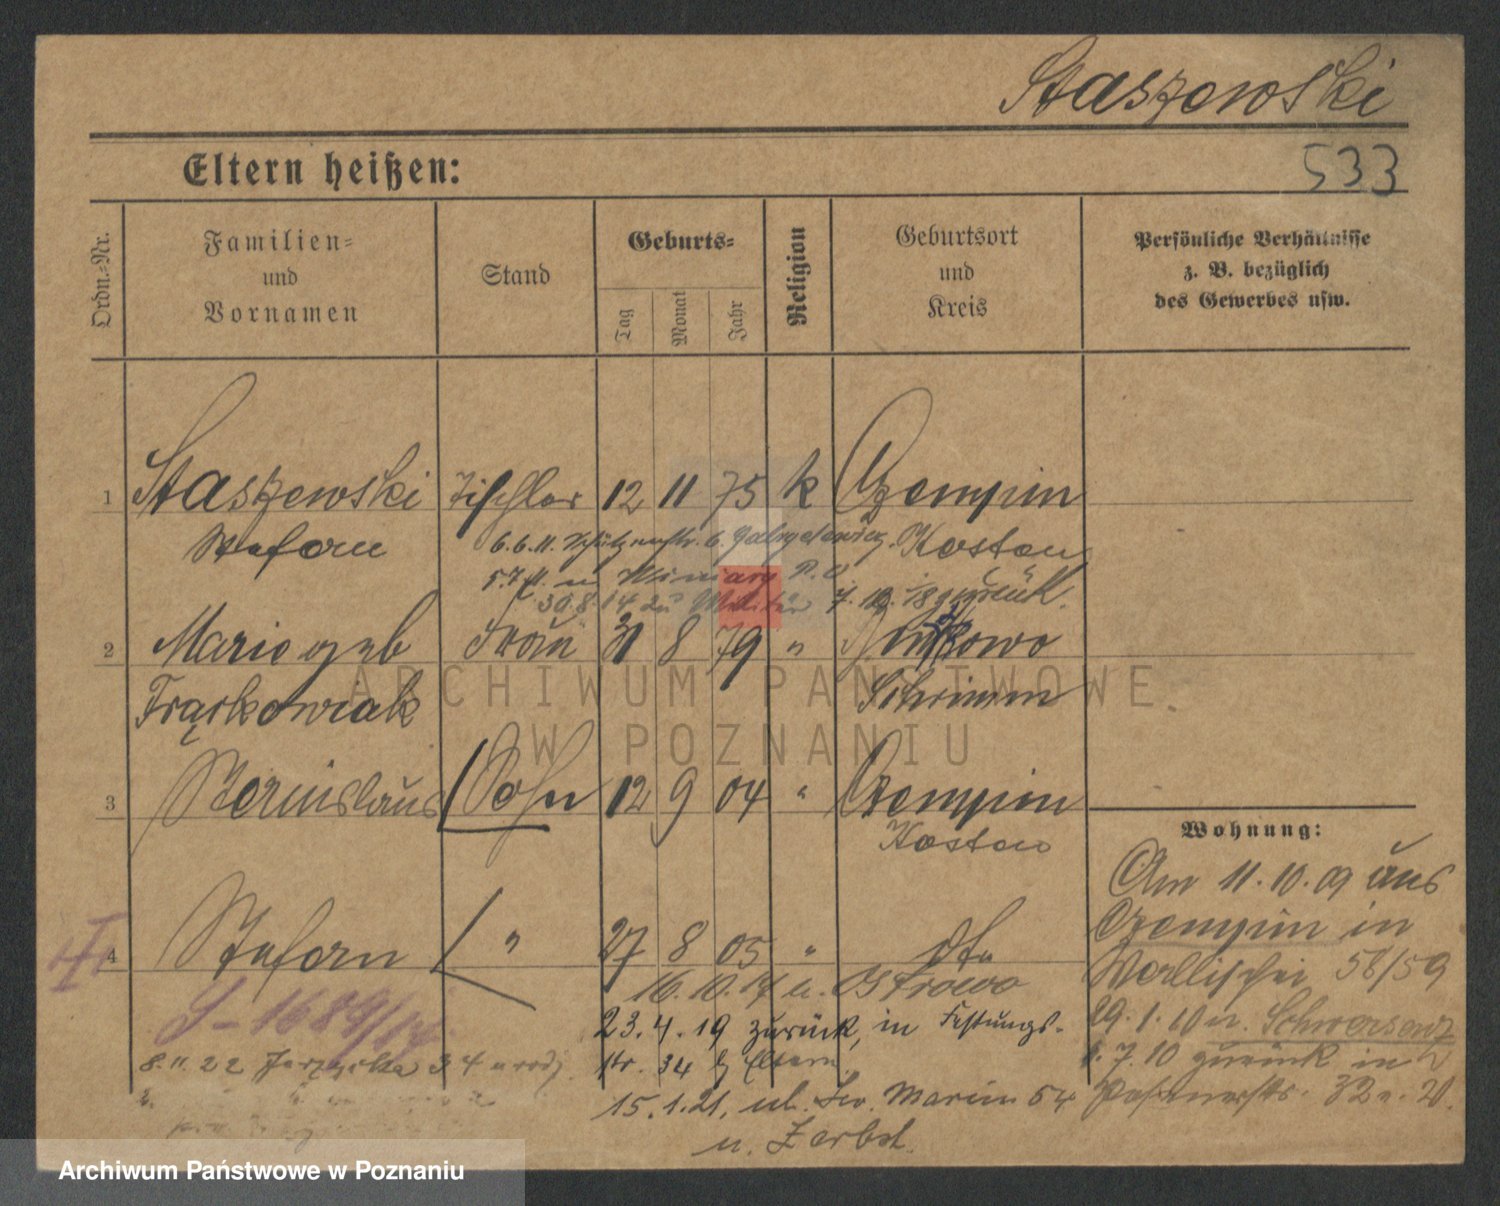 Staszewski
533
Eltern heißen:
Ordn.-Nr.
Familien-
und
Vornamen
Stand
Geburts-
Tag
Monat
Jahr
Religion
Geburtsort
und
Kreis
Persönliche Verhältnisse
z. B. bezüglich
des Gewerbes usw.
1 Staszewski Tischler 12 11 75 k Czempin
Stefan Kosten
6.6.11. Schützenstr. 6
5.7.11. n. Winiary P. O
30.8.14 zu Militär 7. 12. 18 zurück.
2 Marie geb Frau 31 8 79 "
Frąckowiak Schrimm
3 Stanislaus Sohn 12 9 04 " Czempin
Kosten
4 Stefan " 27 8 05 " dto
16.10.17 n. Ostrowo
23.4.19 zurück, in Festungs-
str. 34 b/ Eltern.
15.1.21, ul. Św. Marcin 54
n. Zerbst.
J-1689/14
8.11.22 34
Wohnung:
Am 11.10.09 aus
Czempin in
Wallischei 58/59
29.1.10 n. Schwersenz
1.7.10 zurück in
32
ARCHIWUM PAŃSTWOWE
W POZNANIU
Archiwum Państwowe w Poznaniu